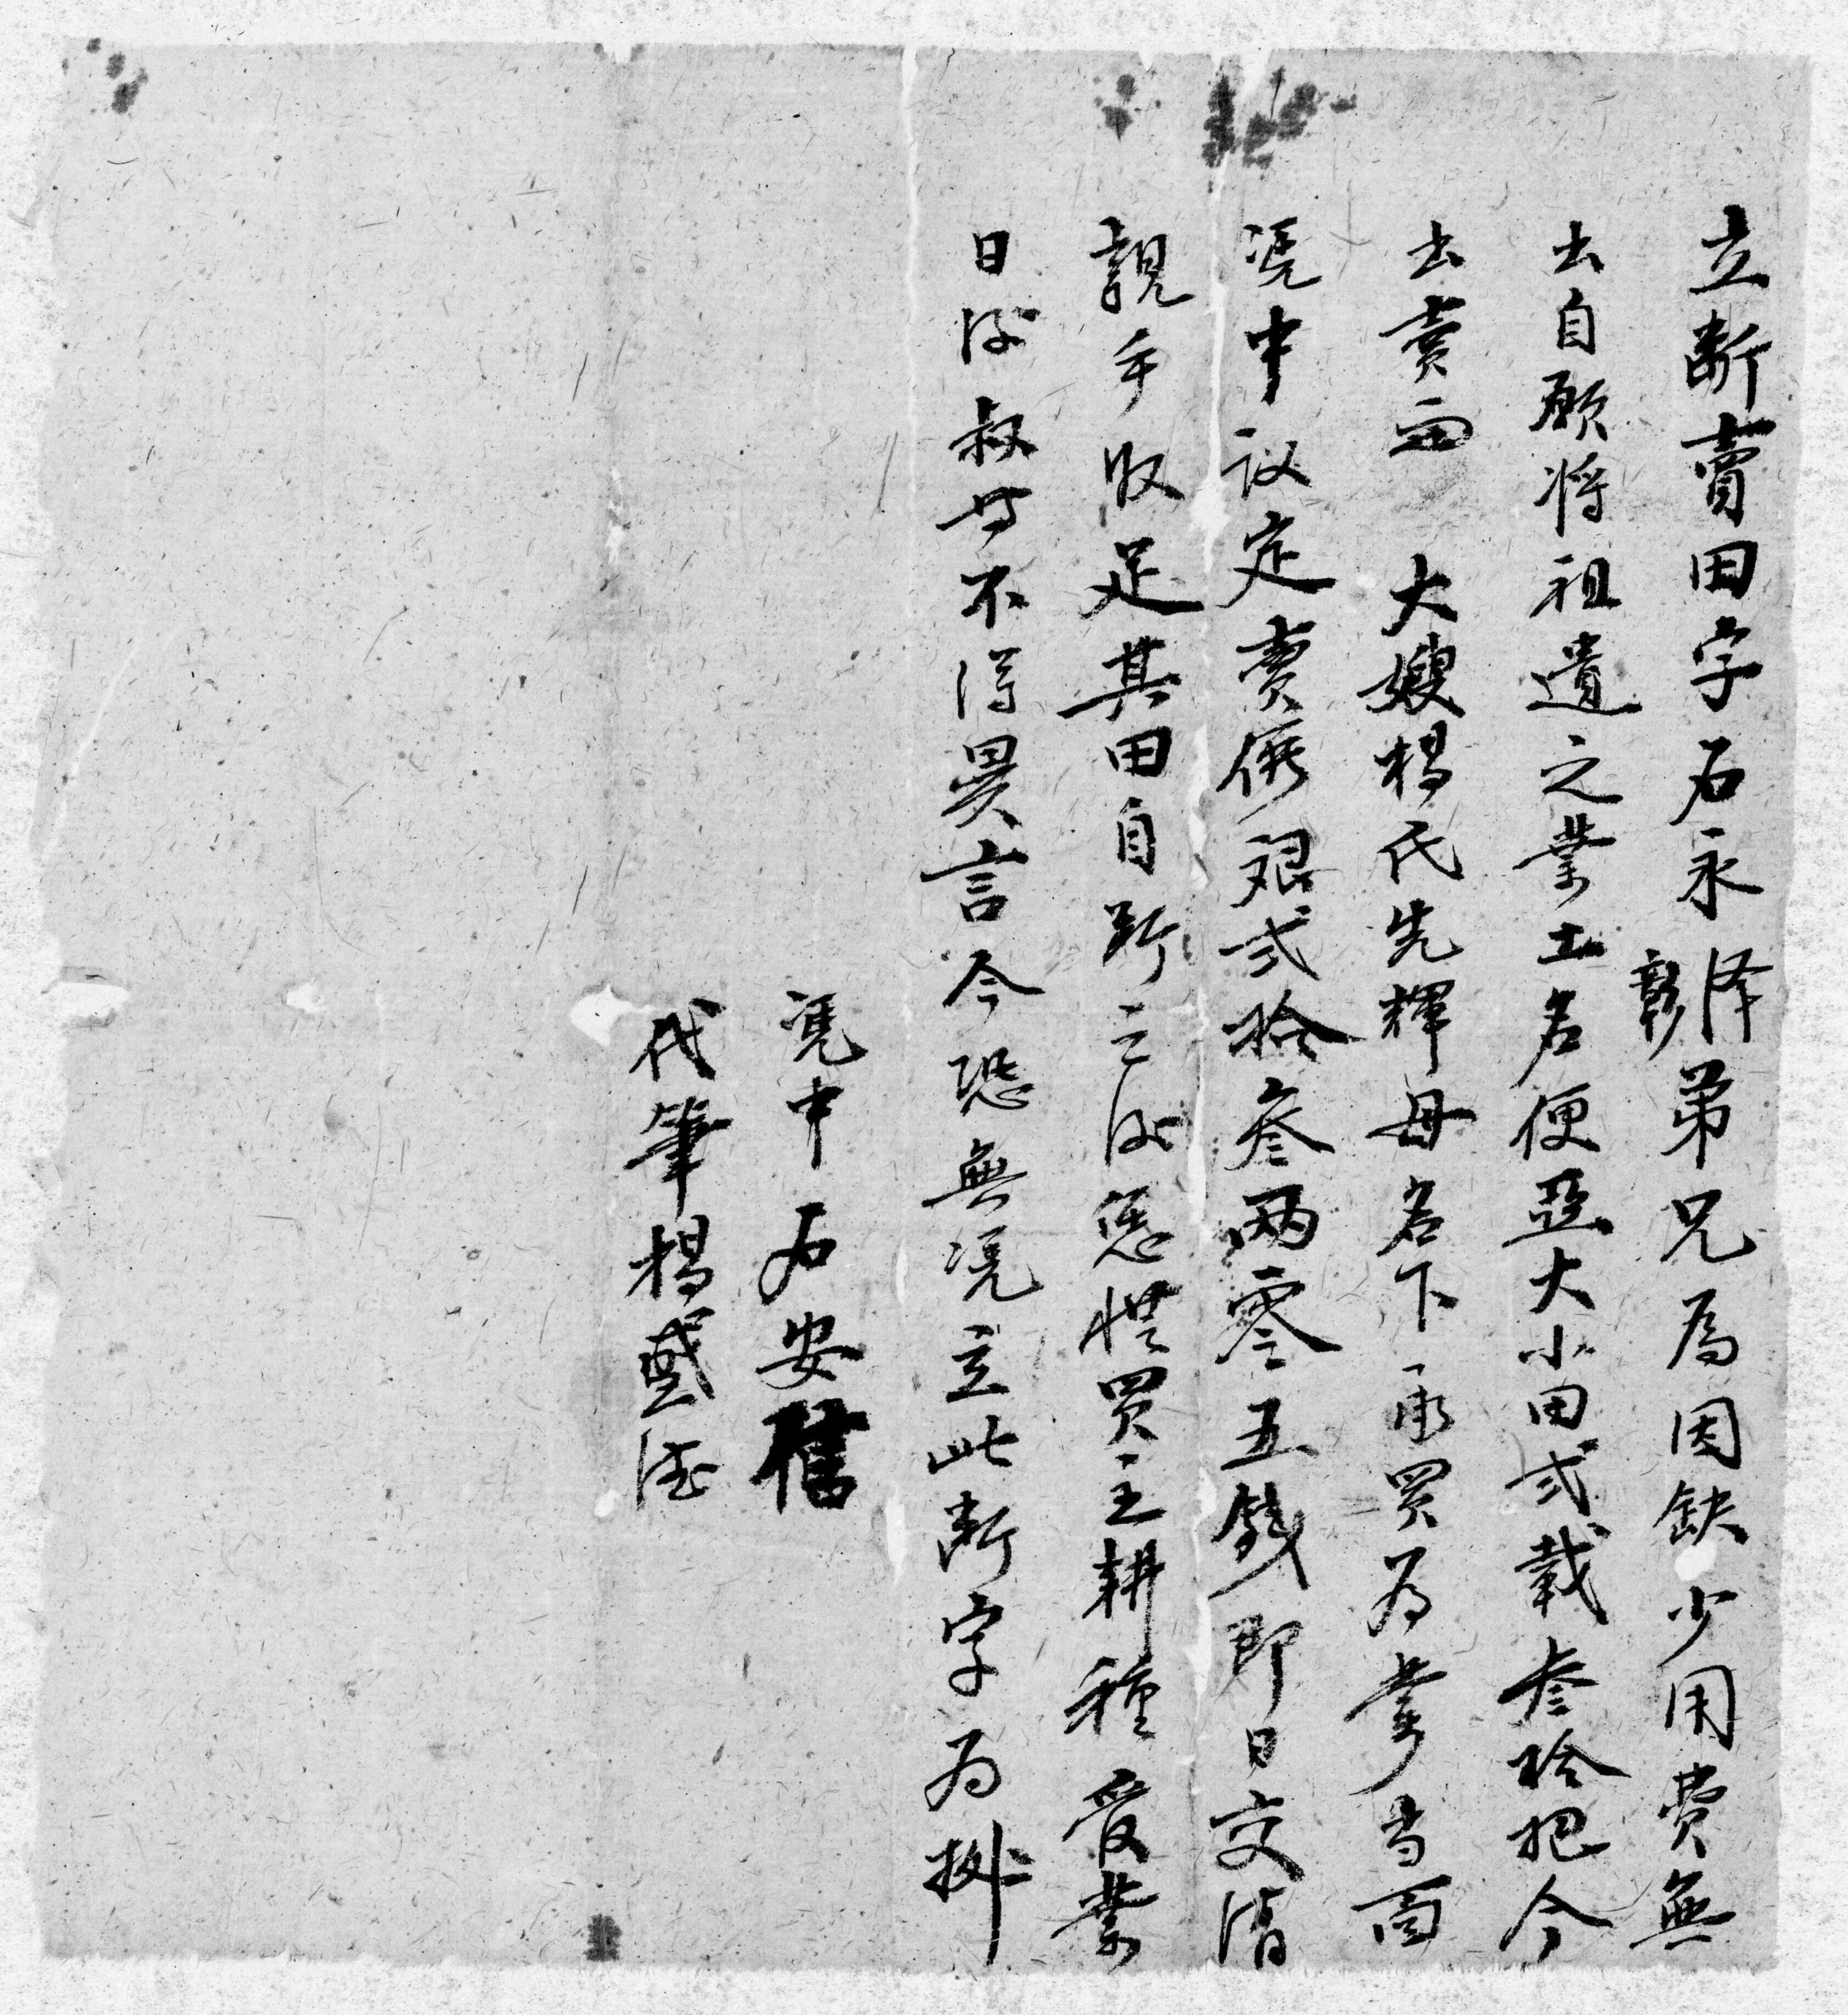 立断賣田字石永泽彰弟兄為因缺少用費無
出自願将祖遺之業土名便亞大小田弍載叁拾把今
出賣與大嫂楊氏先輝母名下承買為業当面
凭中议定賣價艮弍拾叁两零五錢即日交清
親手收足其田自断之後恁凴買主耕種管業
日後叔母不得異言今恐無凭立此断字为挷
凭中石安舊
代筆楊國德